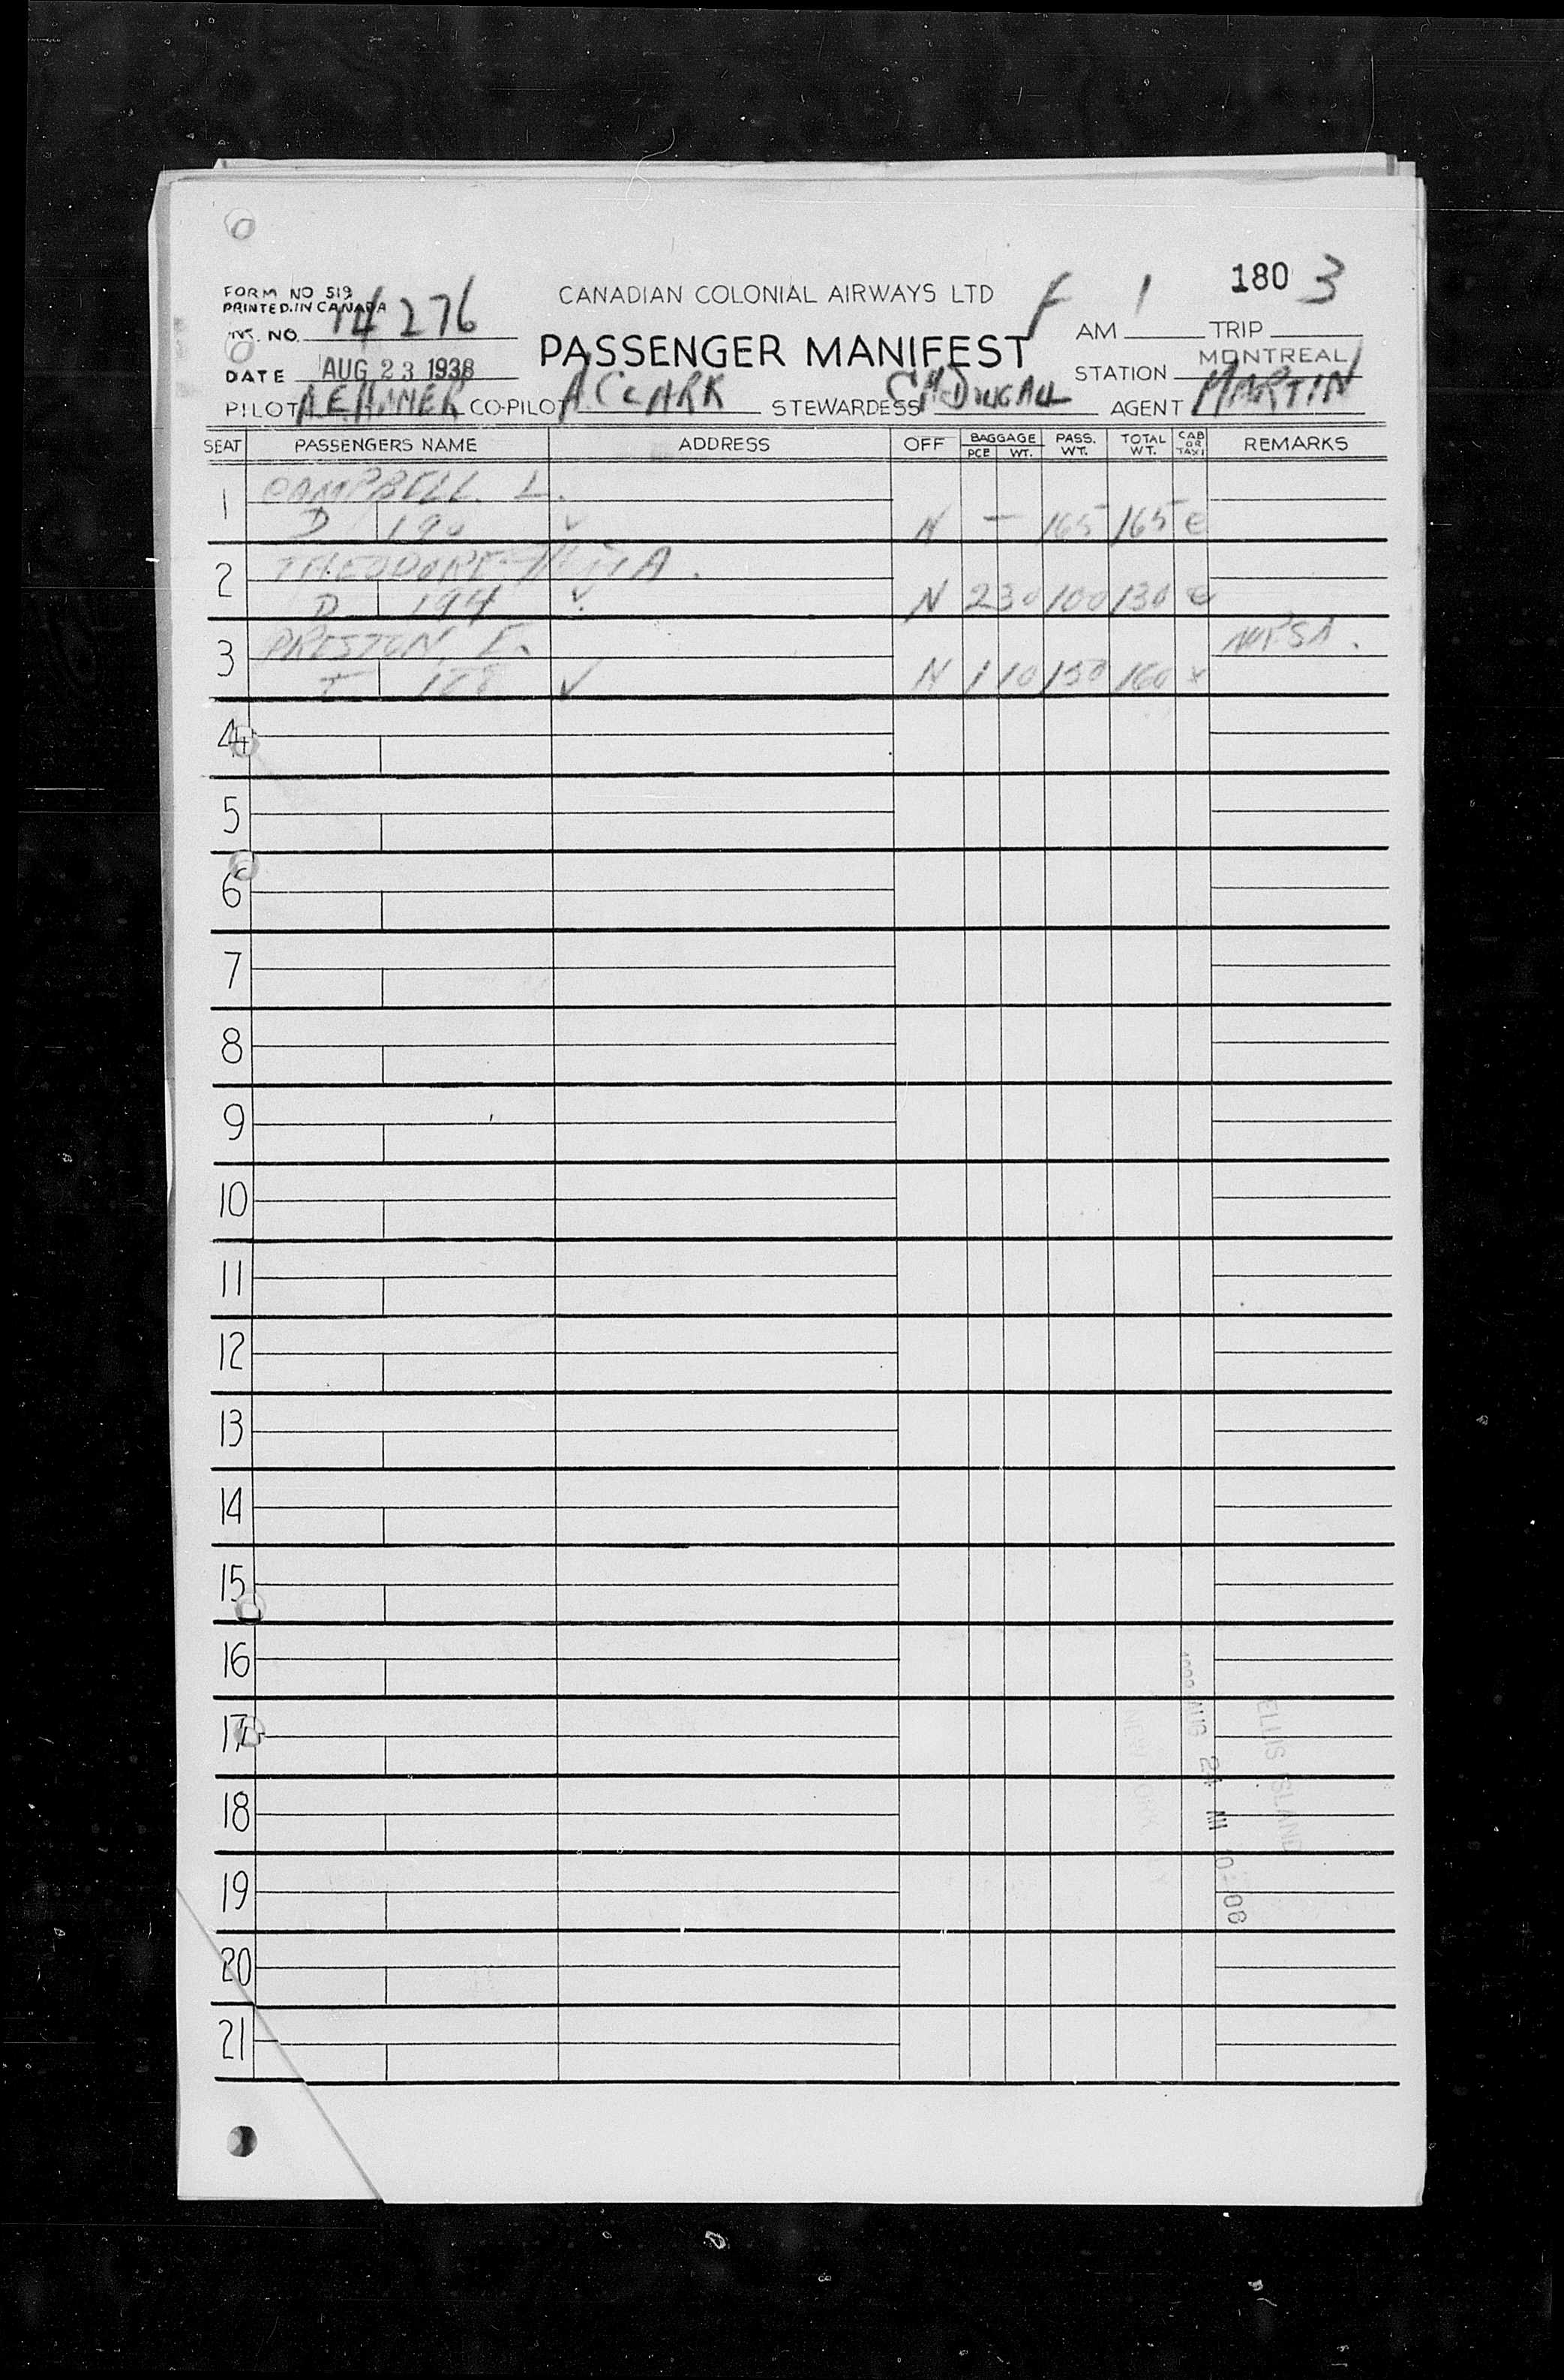 FORM NO 519
PRINTED IN CANADA
CANADIAN COLONIAL AIRWAYS LTD
F 1 180 3
INT. NO. 14276
PASSENGER MANIFEST
AM TRIP
DATE AUG 23 1938
STATION MONTREAL
PILOT CO-PILOT A. CLARK STEWARDESS C McDOUGALL AGENT MARTIN
SEAT PASSENGERS NAME ADDRESS OFF BAGGAGE PCE WT. PASS. WT. TOTAL WT. CAB OR TAXI REMARKS
1 CAMPBELL L.
D 190 ✓ N — 165 165 e
2 THEODORE A.
D 194 ✓ N 2 30 100 130 e
3 PRESTON E.
✓ N 1 10 150 160 x
4
5
6
7
8
9
10
11
12
13
14
15
16
17
18
19
20
21
ELLIS ISLAND
AUG 24 AM 10:08
NEW YORK